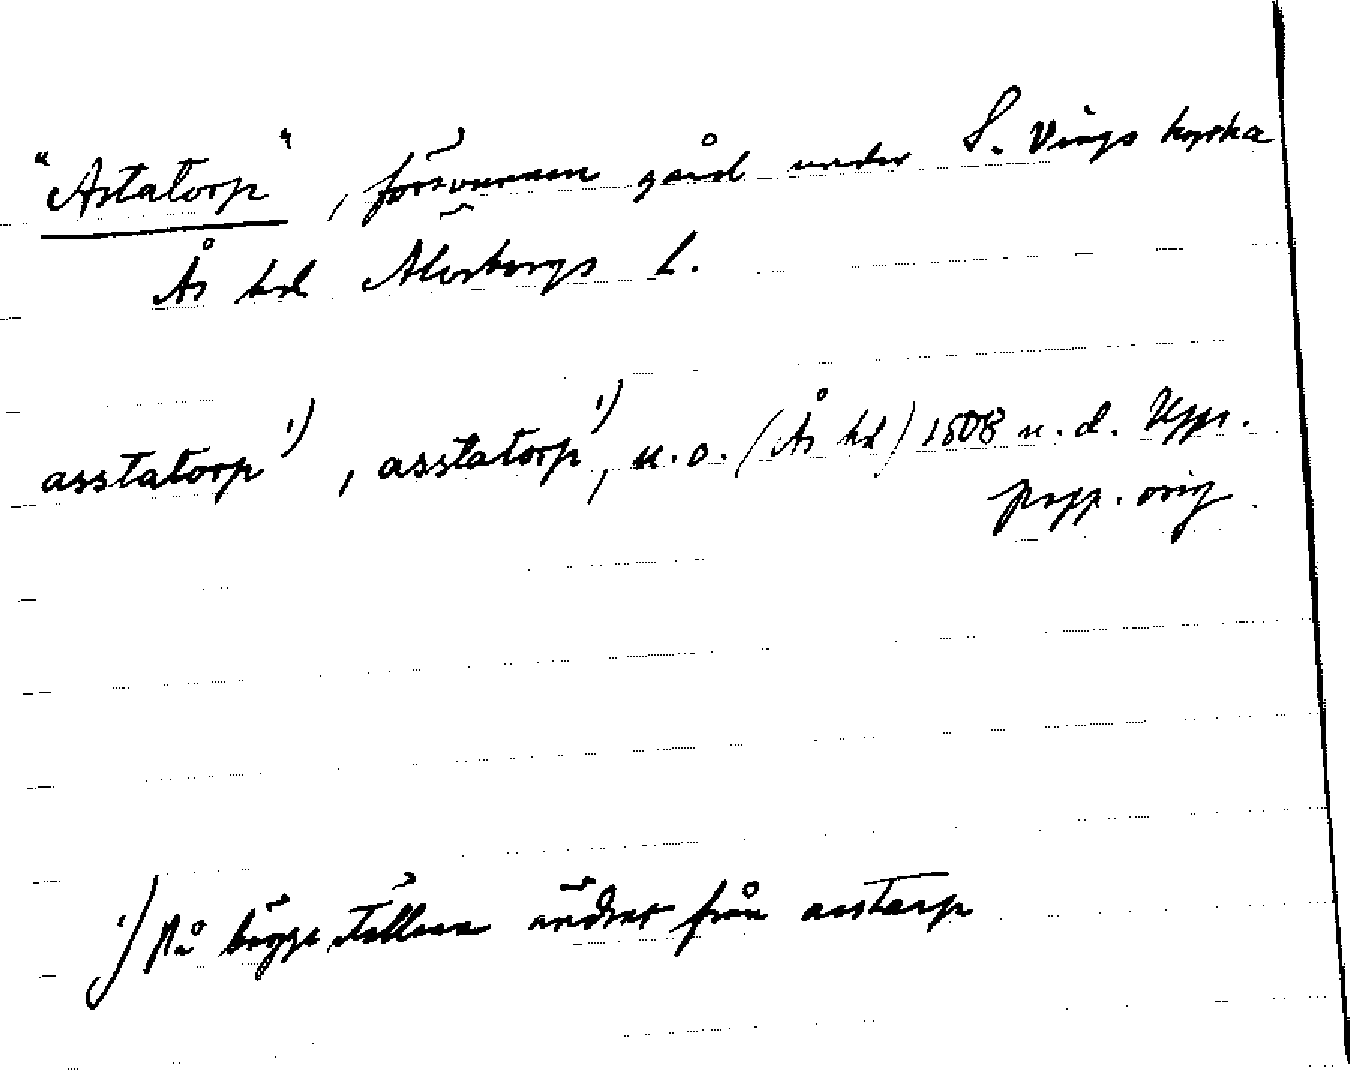 "Astatorp", försvunnen gård under S. Vings kyrka
Ås hd Älvsborgs l.
asstatorp ¹), asstatorp ¹), u.o. (Ås hd) 1508 u.d. Upps.
papp. orig.
¹) På bägge ställena ändrat från astarp